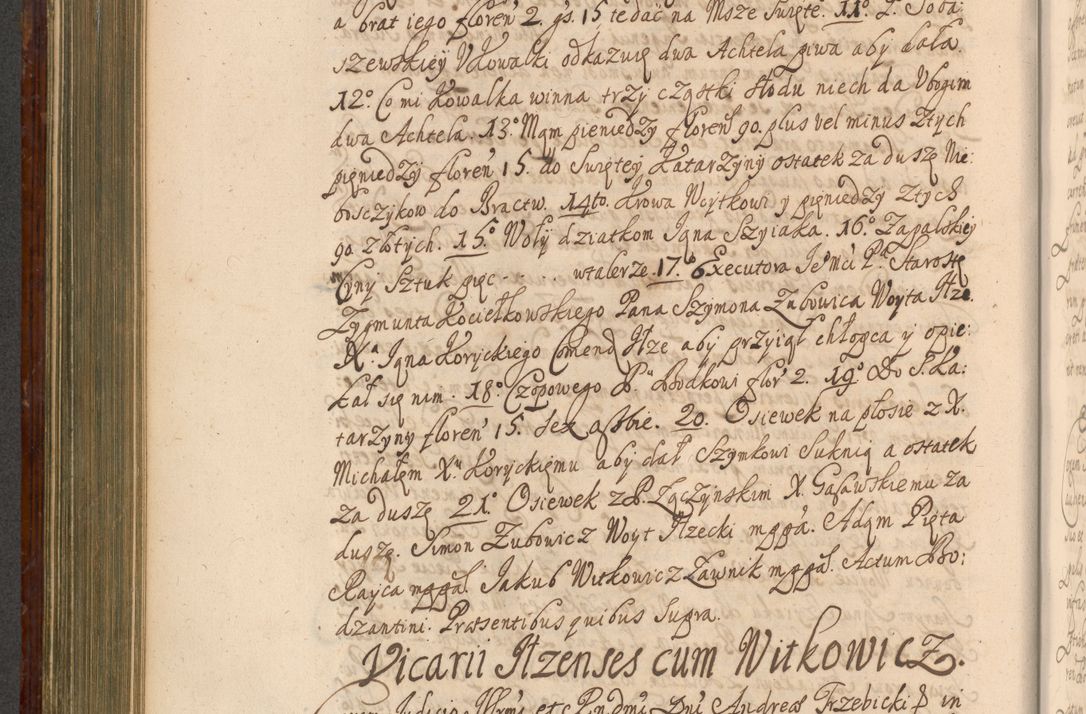 a brat iego floren̄ 2. gs. 15 te dać na Msze Swięte. 11º. P. Soba:
szewskiey Vdowałki odkazuię dwa Achtela piwa aby dała.
12º. Co mi Kowalka winna trzy cząstki słodu niech da Vbogim
dwa Achtela. 13º. Mąm pieniędzy floren̄ 90. plus vel minus Ztych
pięniędzy floren̄ 15. do Swiętey Katarzyny ostatek za duszę Nie:
bosczykow do Bractw. 14to. Krowa Woytkowi y pięniędzy Ztych
90. złotych. 15º. Woły dziatkom Iąna Szyiaka. 16º. Zapalskiey
Cyny Sztuk pięc ..... w talerze. 17º. Executora Ieº mći Pª Starostę
Zygmunta Kociełkowskiego Pana Szymona Zubowica Woyta Ilze.
Xª. Iąna Koryckiego Comend Ilze aby przyiął chłopca y opie:
kał się nim. 18º. Czopowego Pu Bodkowi flor̄ 2. 19º Do S. Ka:
tarzyny floren̄ 15. 20. Osiewek na płosie z X.
Michałem Xu Koryckięmu aby dał Szymkowi Suknią a ostatek
za duszę 21º. Osiewek z P. Zączyńskim X. Gasawskiemu za
duszę. Simon Zubowicz Woyt Ilzecki mppá. Adąm Pięta
Rayca mppá. Jakub Witkowicz Ławnik mppá. Actum Bo:
dzantini. Præsentibus quibus supra.
Vicarii Ilzenses cum Witkowicz.
Judicio Illmi etc Rndmi Dni Andreas Trzebicki in